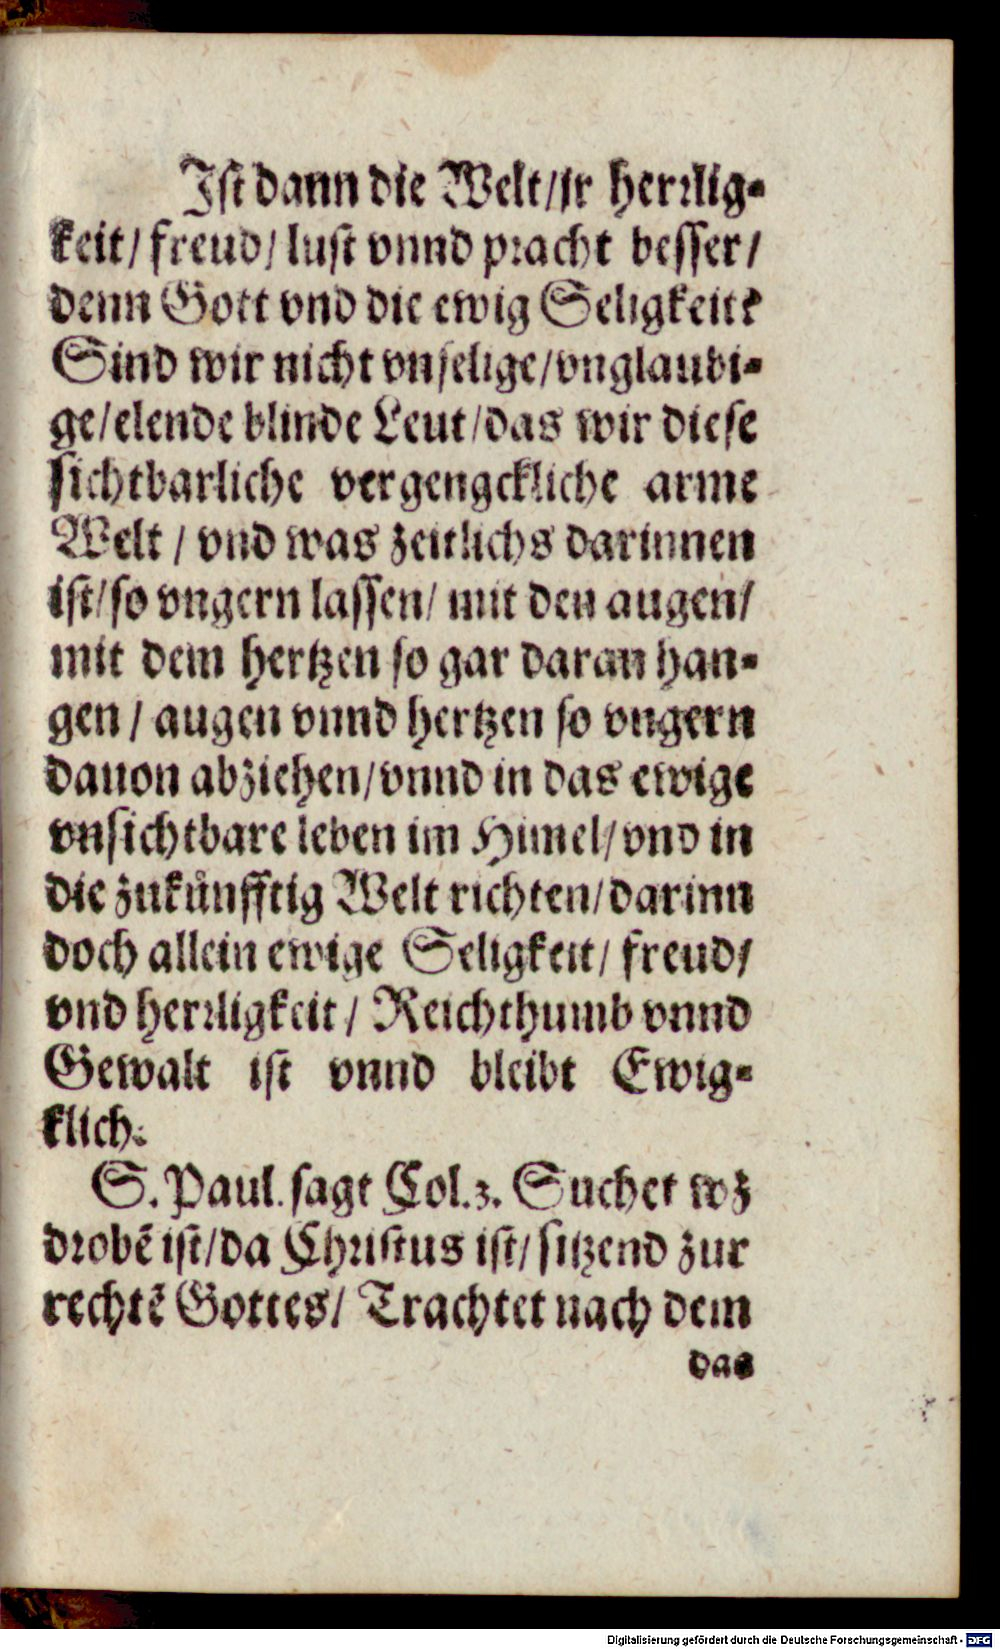 Ist dann die Welt/ jr herrlig-
keit/ freud/ lust vnnd pracht besser/
denn Gott vnd die ewig Seligkeit?
Sind wir nicht vnselige/ vnglaubi-
ge/ elende blinde Leut/ das wir diese
sichtbarliche vergengckliche arme
Welt / vnd was zeitlichs darinnen
ist/ so vngern lassen/ mit den augen/
mit dem hertzen so gar daran han-
gen / augen vnnd hertzen so vngern
dauon abziehen/ vnnd in das ewige
vnsichtbare leben im Himel/ vnd in
die zukůnfftig Welt richten/ darinn
doch allein ewige Seligkeit/ freud/
vnd herrligkeit / Reichthumb vnnd
Gewalt ist vnnd bleibt Ewig-
klich.
S. Paul. sagt Col. 3. Suchet wz
drobē ist/ da Christus ist/ sitzend zur
rechtē Gottes/ Trachtet nach dem
das
Digitalisierung gefördert durch die Deutsche Forschungsgemeinschaft - DFG